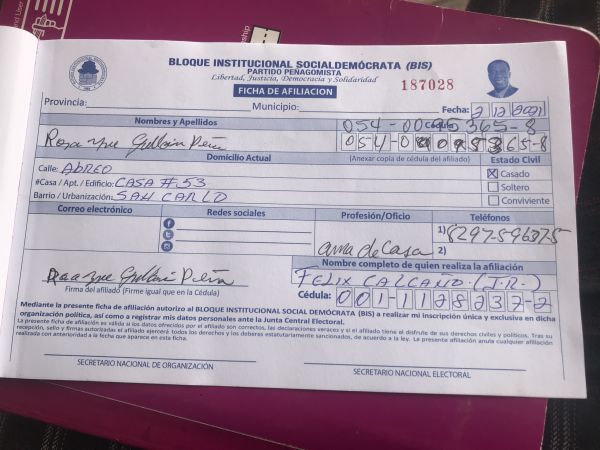 BLOQUE INSTITUCIONAL SOCIALDEMÓCRATA (BIS)
PARTIDO PEÑAGOMISTA
Libertad, Justicia, Democracia y Solidaridad
FICHA DE AFILIACION
187028
Provincia: Municipio: Fecha: 2 12 2021
Nombres y Apellidos Cédula
054-0095365-8
054-0098365-8
Domicilio Actual (Anexar copia de cédula del afiliado) Estado Civil
Calle: ABREO
#Casa / Apt. / Edificio: CASA #53
Barrio / Urbanización: SAN CARLO
Casado
Soltero
Conviviente
Correo electrónico Redes sociales Profesión/Oficio Teléfonos
1) 8297596375
ama de casa 2)
Nombre completo de quien realiza la afiliación
FELIX CALCAÑO (J.R.)
Firma del afiliado (Firme igual que en la Cédula)
Cédula: 001-1128237-2
Mediante la presente ficha de afiliación autorizo al BLOQUE INSTITUCIONAL SOCIAL DEMÓCRATA (BIS) a realizar mi inscripción única y exclusiva en dicha
organización política, así como a registrar mis datos personales ante la Junta Central Electoral.
La presente ficha de afiliación es válida si los datos ofrecidos por el afiliado son correctos, las declaraciones veraces y si el afiliado tiene el disfrute de sus derechos civiles y políticos. Tras su
recepción, sello y firmas autorizadas el afiliado ejercerá todos los derechos y los deberes estatutariamente sancionados, de acuerdo a la ley. La presente afiliación anula cualquier afiliación
realizada con anterioridad a la fecha que aparece en esta ficha.
SECRETARIO NACIONAL DE ORGANIZACIÓN
SECRETARIO NACIONAL ELECTORAL